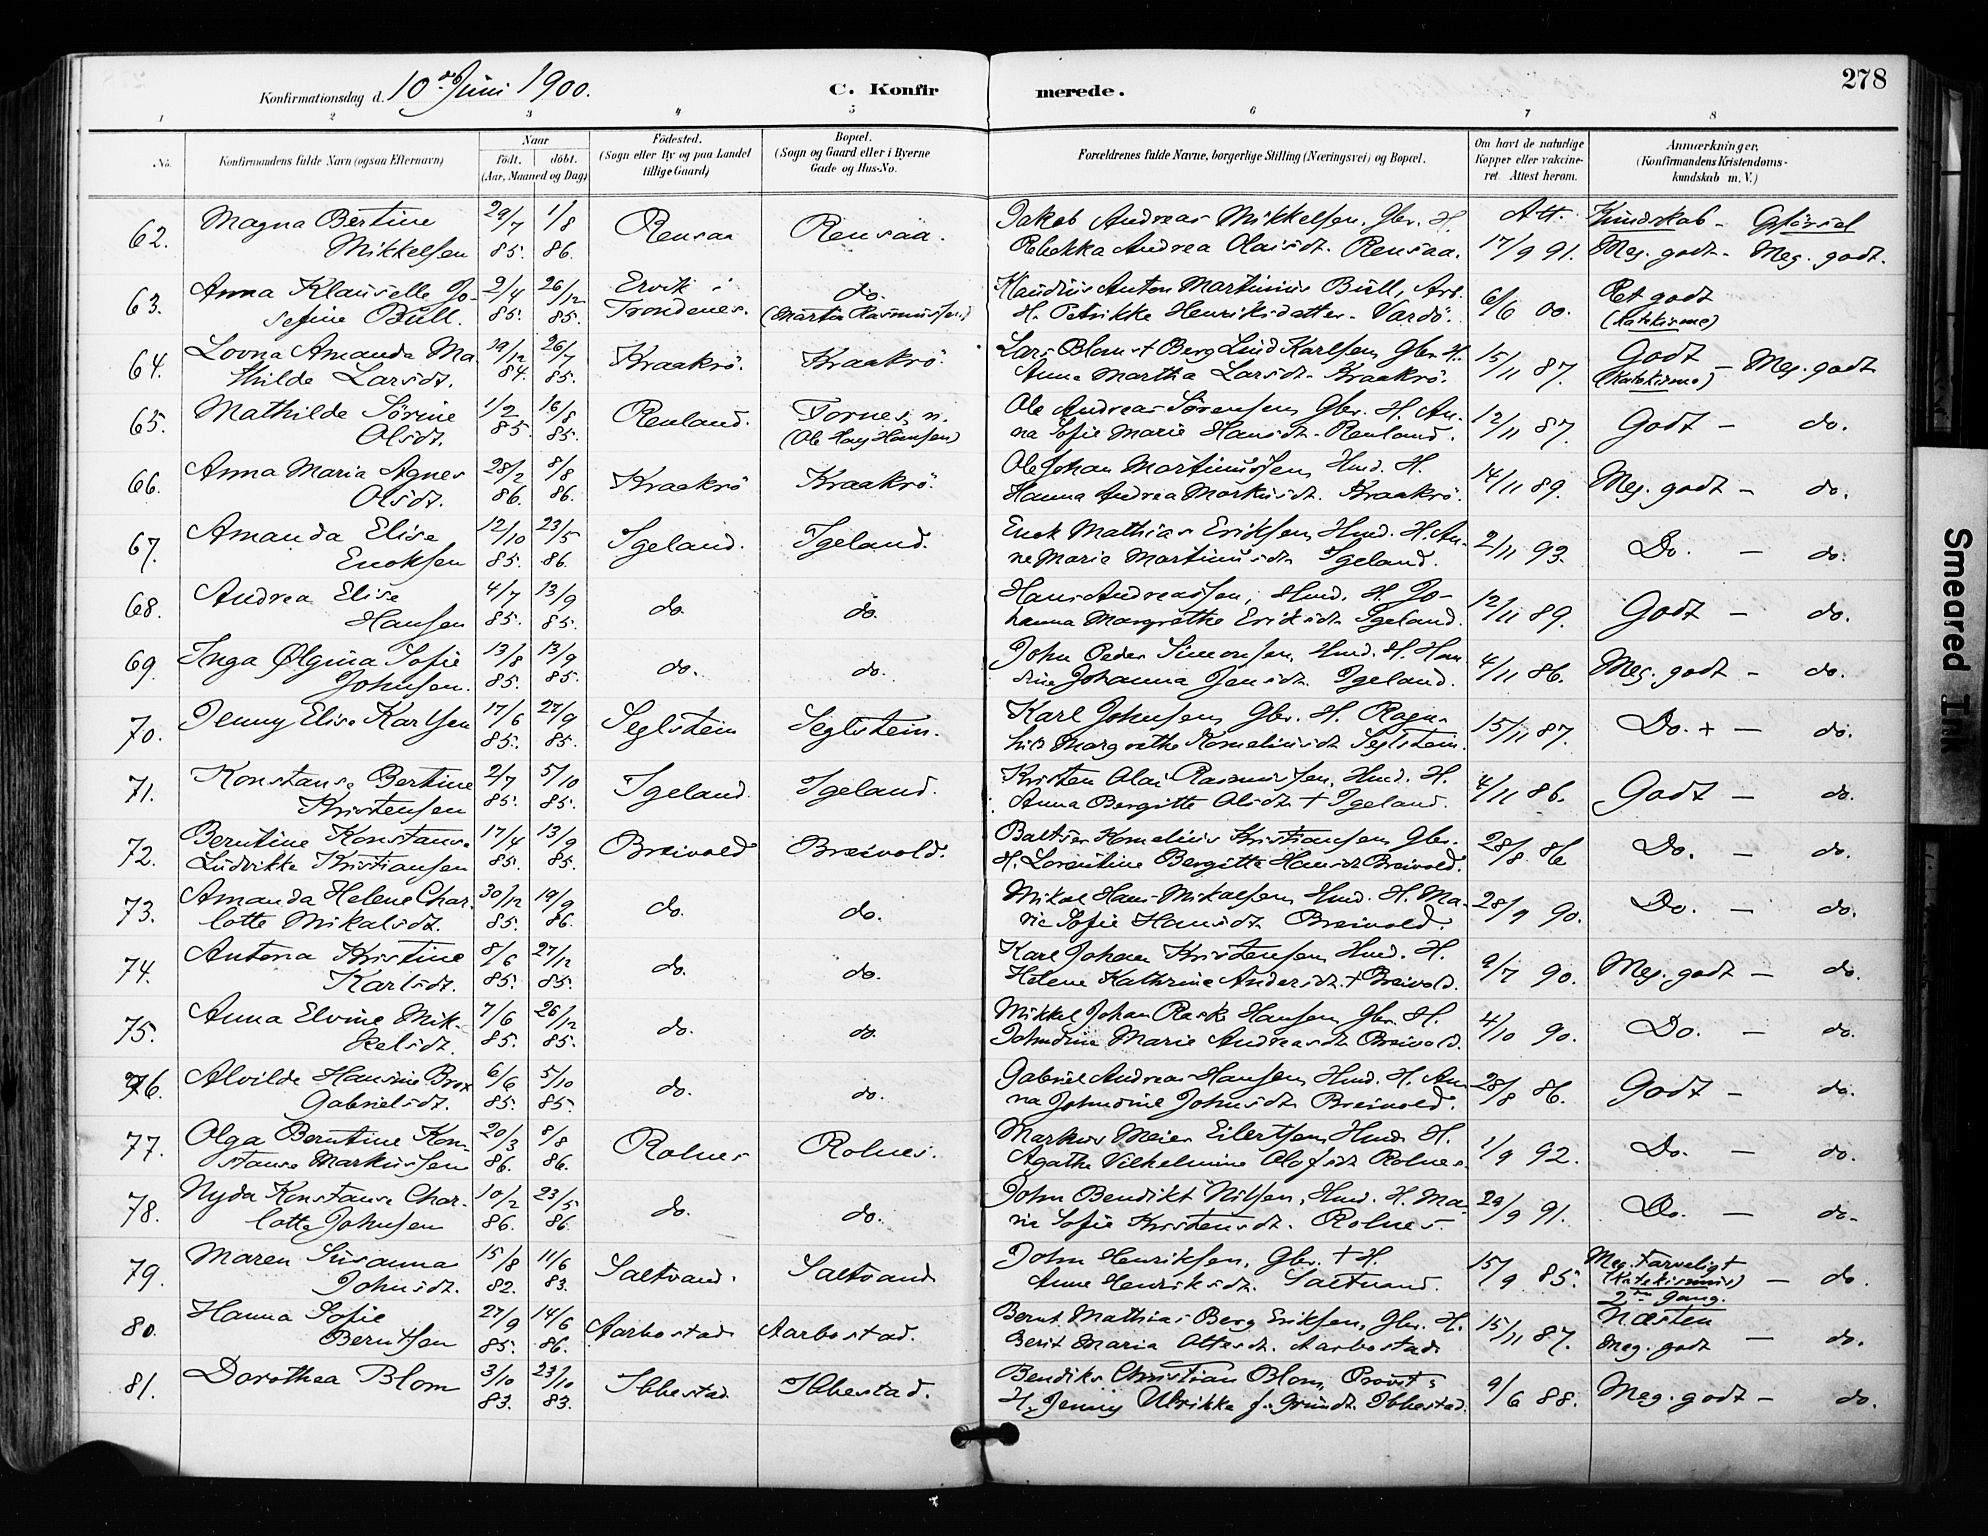 Konfirmationsdag d. 10de Juni 1900.
C. Konfir
merede.
278
1 2 3 4 5 6 7 8
No.
Konfirmandens fulde Navn (ogsaa Efternavn)
Naar
født. døbt.
(Aar, Maaned og Dag)
Fødested.
(Sogn eller By og paa Landet
tillige Gaard)
Bopæl.
(Sogn og Gaard eller i Byerne
Gade og Hus-No.
Forældrenes fulde Navne, borgerlige Stilling (Næringsvei) og Bopæl.
Om havt de naturlige
Kopper eller vakcine-
ret. Attest herom.
Anmærkninger.
(Konfirmandens Kristendoms-
kundskab m. V.)
62. Magna Bertine 29/7 1/8 Rensaa Rensaa. Jakob Andreas Mikkelsen, Gbr. H. Att. Kundskab - Opførsel
Mikkelsen 85. 86. Rebekka Andrea Olaisdt. Rensaa. 17/9 91. Meg. godt. - Meg. godt.
63. Anna Klauselle Jo- 2/4 26/12 Ervik i do. Klaudius Anton Martinius Bull, Arb. 6/6 00. Ret godt
sefine Bull. 85. 85. Trondenes. (Martin Rasmussen) H. Petrikke Henriksdatter. Vardö. (Katekisme)
64. Lovna Amanda Ma- 19/12 26/7 Kraakrö. Kraakrö. Lars Blomst Berg Lind Karlsen, Gbr. H. 15/11 87. Godt - Meg. godt
thilde Larsdt. 84. 85. Anna Martha Larsdt. Kraakrö. (Katekisme)
65. Mathilde Sørine 1/2 16/8 Renland. Fornes, n. Ole Andreas Sørensen, Gbr. H. An- 12/11 87. Godt - do.
Olsdt. 85. 85. (Ole Haag Hansen) na Sofie Marie Hansdt. Renland.
66. Anna Maria Agnes 28/2 8/8 Kraakrö Kraakrö. Ole Johan Martinussen, Hmd. H. 14/11 89. Meg. godt - do.
Olsdt. 86. 86. Hanna Andrea Markusdt. Kraakrö.
67. Amanda Elise 12/10 23/5 Igeland. Igeland. Enok Mathias Eriksen, Hmd. H. An- 2/11 93. Do. - do.
Enoksen 85. 86. ne Marie Martinusdt. Igeland.
68. Andrea Elise 4/7 13/9 do. do. Hans Andreassen, Hmd. H. Jo- 12/11 89. Godt - do.
Hansen 85. 85. hanna Margrethe Eriksdt. Igeland.
69. Inga Ølgina Sofie 13/8 13/9 do. do. John Peder Simonsen, Hmd. H. Han- 4/11 86. Meg. godt - do.
Johnsen. 85. 85. sine Johanna Jensdt. Igeland.
70. Jenny Elise Karlsen 17/6 27/9 Seglstein Seglstein. Karl Johnsen, Gbr. H. Ragn- 15/11 87. Do. + - do.
85. 85. hild Margrethe Korneliusdt. Seglstein.
71. Konstanse Bertine 2/7 5/10 Igeland. Igeland. Kristen Olai Rasmussen, Hmd. H. 4/11 86. Godt - do.
Kristensen 85. 85. Anna Bergitte Olsdt + Igeland.
72. Berntine Konstanse 17/4 13/9 Breivold Breivold. Baltser Kornelius Kristiansen, Gbr. 28/8 86 Do. - do.
Ludvikke Kristiansen 85. 85. H. Lorentine Bergitte Hansdt. Breivold.
73. Amanda Helene Char- 30/12 19/9 do. do. Mikal Hans Mikalsen, Hmd. H. Ma- 28/9 90. Do. - do.
lotte Mikalsdt. 85. 86. rie Sofie Hansdt. Breivold.
74. Antona Kristine 8/6 27/12 do. do. Karl Johan Kristensen, Hmd. H. 9/7 90. Meg. godt - do.
Karlsdt. 85. 85. Helene Kathrine Andersdt. + Breivold.
75. Anna Elvine Mik- 7/6 26/12 do. do. Mikkel Johan Rask Hansen, Gbr. H. 4/10 90. Do. - do.
kelsdt. 85. 85. Johndine Marie Andreasdt. Breivold.
76. Alvilde Hansine Brox 6/6 5/10 do. do. Gabriel Andreas Hansen, Hmd. H. An- 28/8 86. Godt - do.
Gabrielsdt. 85. 85. na Johndine Johnsdt. Breivold.
77. Olga Berntine Kon- 20/3 8/8 Rolnes Rolnes. Markus Meier Eilertsen, Hmd. H. 1/9 92. Do. - do.
stanse Markussen 86. 86. Agathe Vilhelmine Olofsdt. Rolnes.
78. Nyda Konstanse Char- 10/2 23/5 do. do. John Bendikt Nilsen, Hmd. H. Ma- 29/9 91. Do. - do.
lotte Johnsen 86. 86. rie Sofie Kristensdt. Rolnes.
79. Maren Susanna 15/8 11/6 Saltvand. Saltvand John Henriksen, Gbr. + H. 15/9 85. Meg. Tarveligt
Johnsdt. 82. 83. Anne Henriksdt. Saltvand. (Katekismus) - do.
2den Gang.
80. Hanna Sofie 27/9 14/6 Aarbostad Aarbostad. Bernt Mathias Berg Eriksen, Gbr. H. 15/11 87. Næsten
Berntsen 85. 86. Berit Maria Ottesdt. Aarbostad Meg. godt - do.
81. Dorothea Blom 3/10 23/10 Ibbestad Ibbestad. Bendiks Christian Blom, Provst. 9/6 88. Meg. godt - do.
83. 83. H. Jenny Ulrikke f. Gründt. Ibbestad.
Smeared Ink